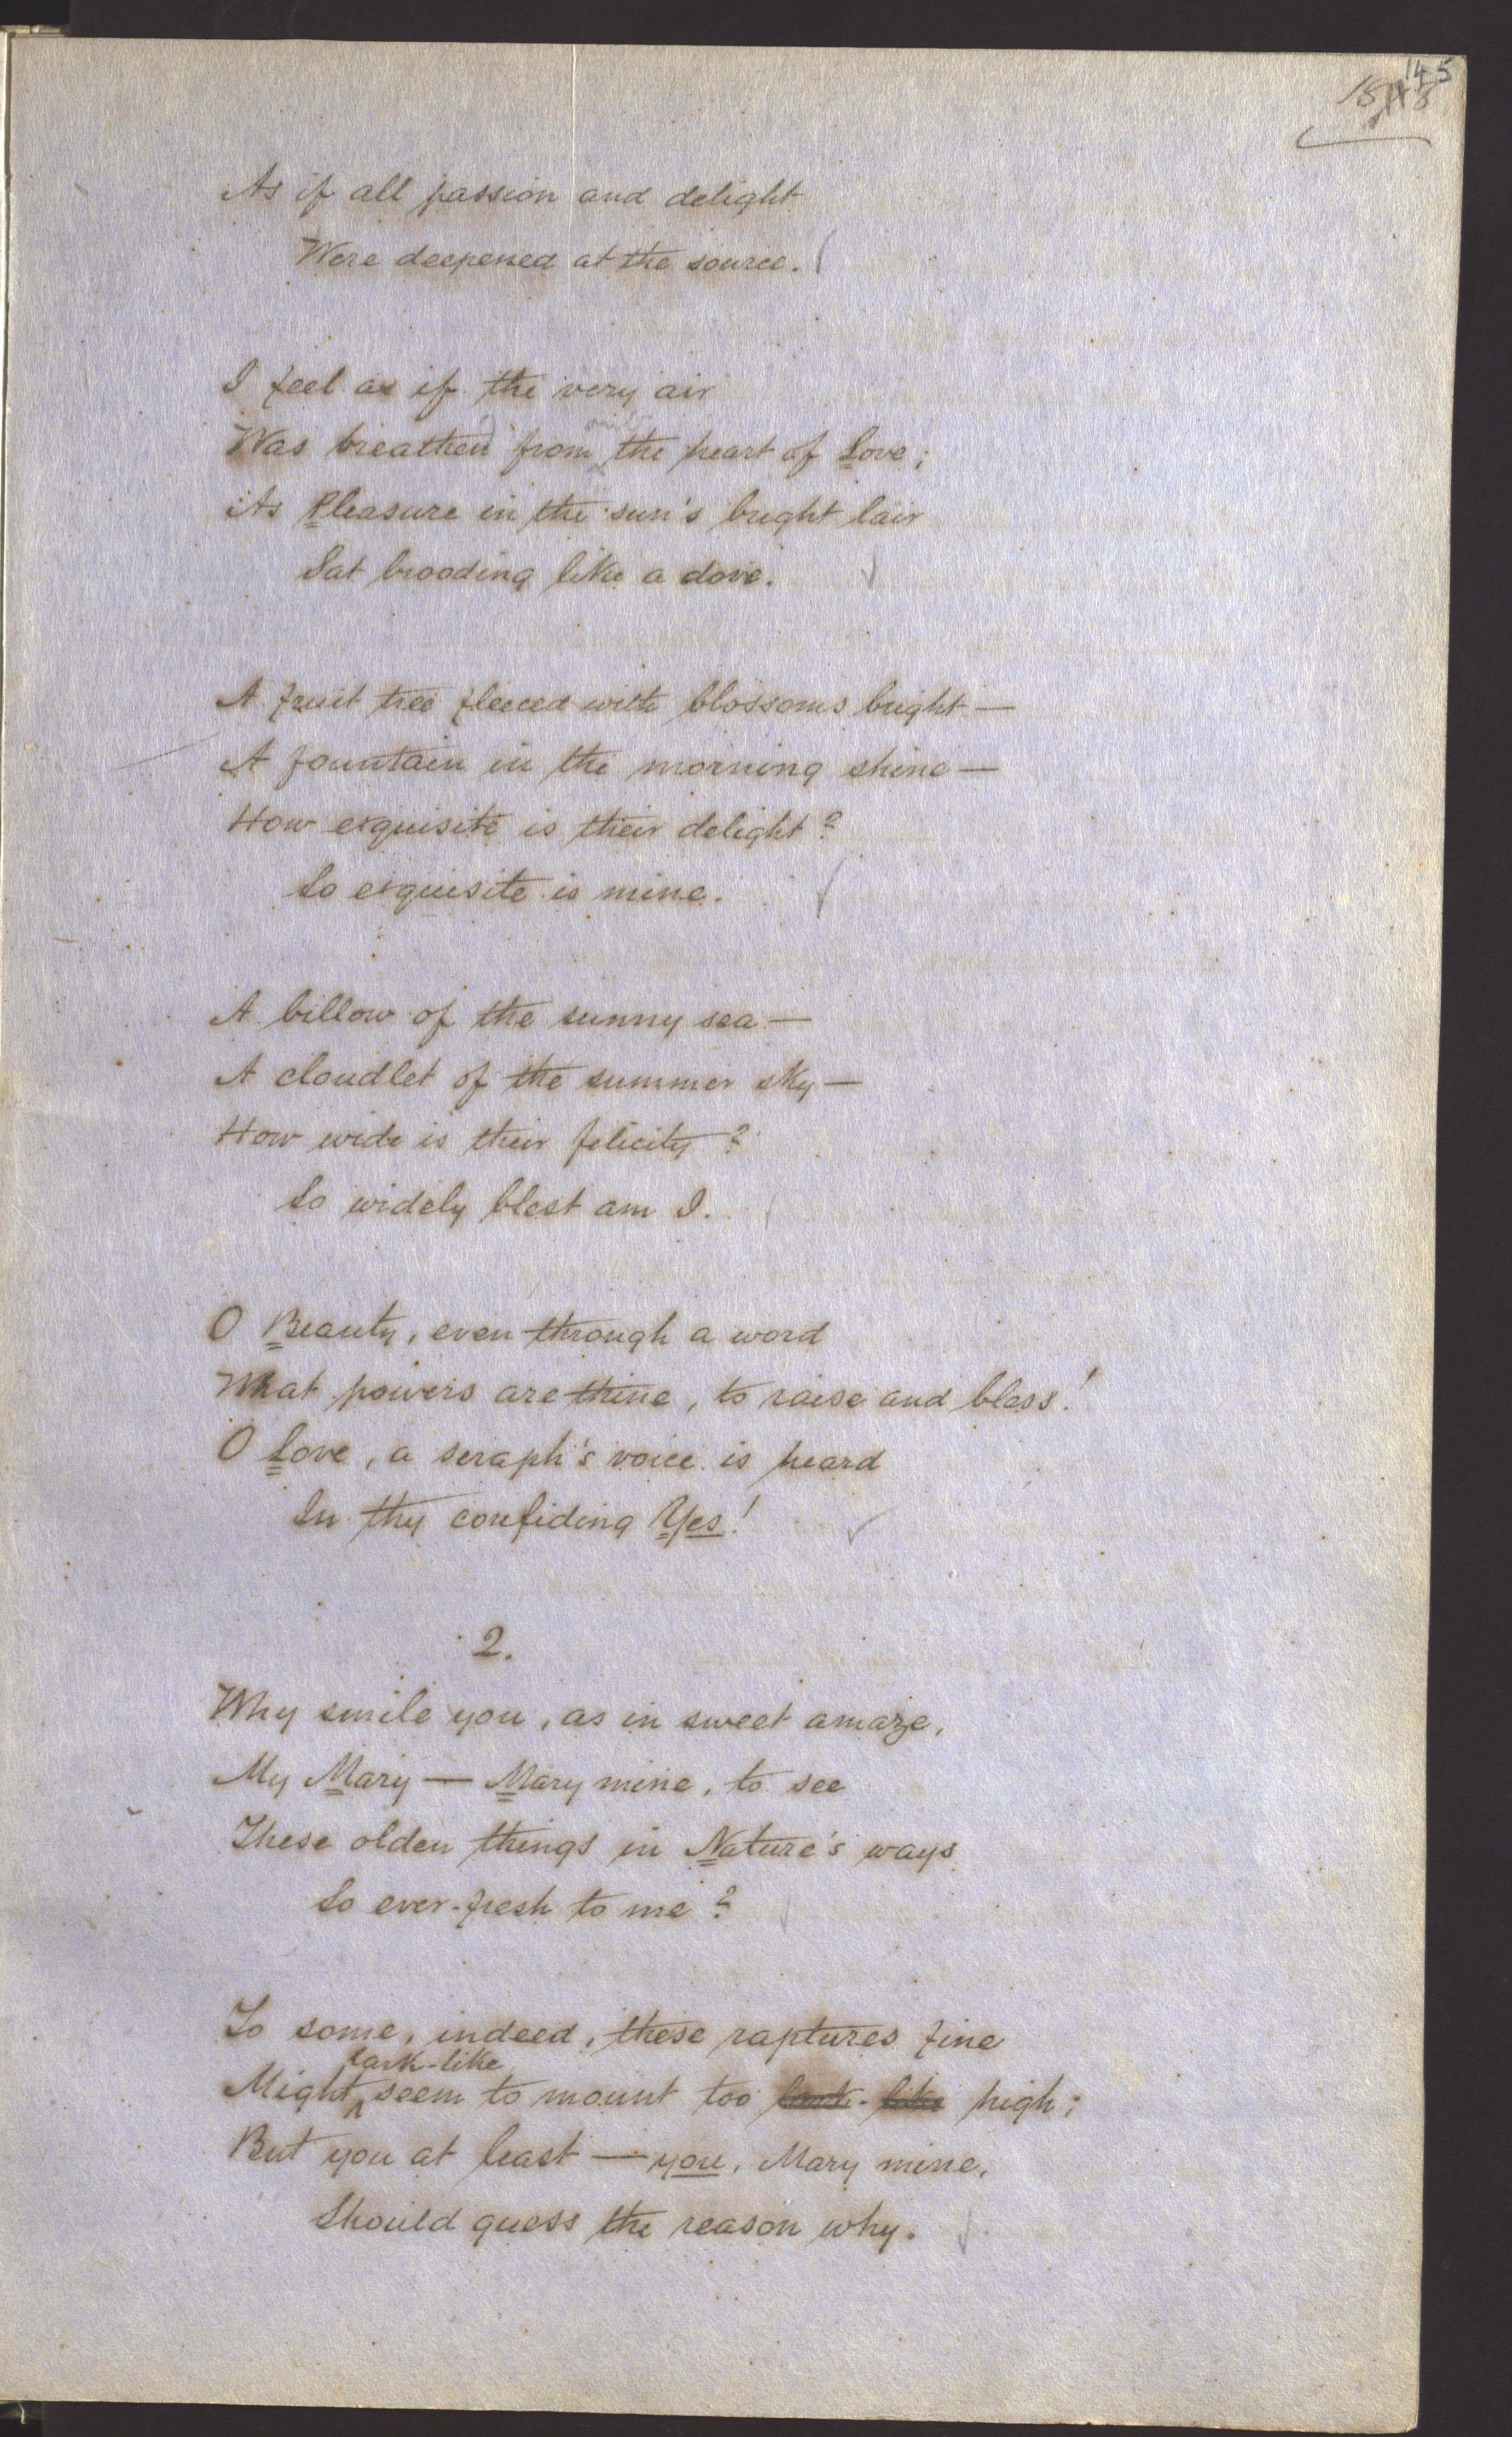 145
As if all passion and delight
Were deepened at the source.
I feel as if the very air
Was breathed from the heart of Love;
As Pleasure in the sun's bright lair
Sat brooding like a dove.
A fruit tree fleeced with blossoms bright —
A fountain in the morning shine —
How exquisite is their delight?
So exquisite is mine.
A billow of the sunny sea —
A cloudlet of the summer sky —
How wide is their felicity?
So widely blest am I.
O Beauty, even through a word
What powers are thine, to raise and bless!
O Love, a seraph's voice is heard
In thy confiding Yes!
2.
Why smile you, as in sweet amaze,
My Mary — Mary mine, to see
These olden things in Nature's ways
So ever-fresh to me?
To some, indeed, these raptures fine
lark-like
Might seem to mount too lark-like high;
But you at least — you, Mary mine,
Should guess the reason why.